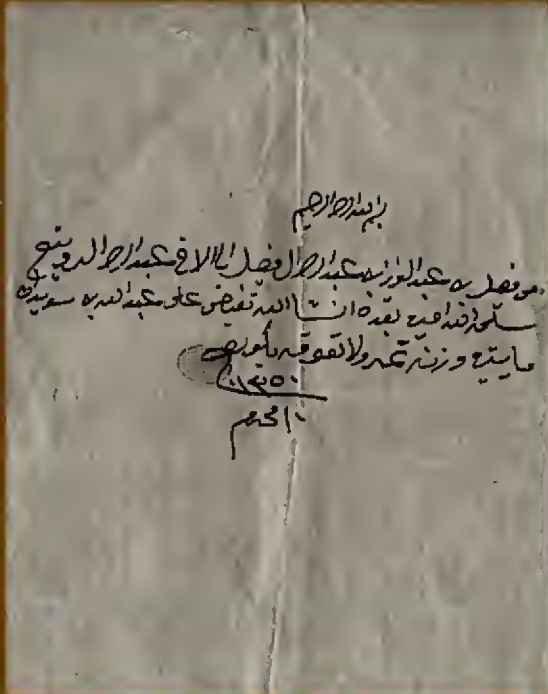 بسم الله الرحمن الرحيم
من فيصل بن عبد العزيز بن عبد الرحمن ال فيصل الى الاخ عبد الرحمن
سلمه الله امين بعده ان شا الله تقبض على عبد الله بن سويدان
مايتين وزنة تمر ولا تعوقه يكون
١٣٥٠
١٠ محرم